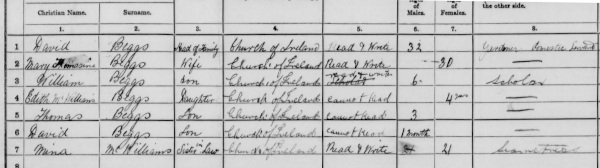 Christian Name. Surname. Males. Females. the other side.
1. 2. 3. 4. 5. 6. 7. 8.
1 David Beggs Head of Family Church of Ireland Read & Write 32 Gardener Domestic Servant
2 Mary Beggs Wife Church of Ireland Read & Write 30 —
3 William Beggs Son Church of Ireland read & write 6 Scholar
4 Edith McWilliams Beggs Daughter Church of Ireland cannot read 4 —
5 Thomas Beggs Son Church of Ireland cannot read 3 —
6 David Beggs Son Church of Ireland cannot read 1 month —
7 Mina McWilliams Sister in Law Church of Ireland Read & Write 21